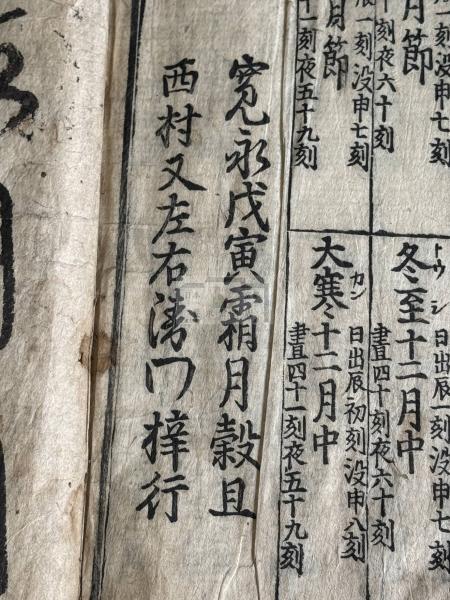 月節
刻没申七刻
刻夜六十刻
月節
辰一刻没申七刻
十一刻夜五十九刻
トウ シ
冬至十二月中
日出辰一刻没申七刻
晝四十刻夜六十刻
カン
大寒十二月中
日出辰初刻没申八刻
晝四十一刻夜五十九刻
寛永戊寅霜月穀旦
西村又左右衛門梓行